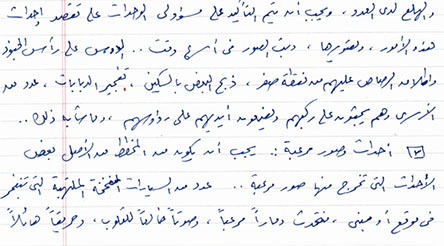 والهلع لدى العدو، ويجب أن يتم التأكيد على مسؤولى الوحدات على تقصد إحداث
هذه الأمور، وتصويرها، وبث الصور فى أسرع وقت.. الدوس على رأس الجنود
وإطلاق الرصاص عليهم من نقطة صفر، ذبح البعض بالسكين، تفجير الدبابات، عدد من
الأسرى وهم يجثون على ركبهم ويضعون أيديهم على رؤوسهم، وما شابه ذلك..
٣ أحداث وصور مرعبة: يجب أن يكون من المخطط من الأصل بعض
الأحداث التى تخرج منها صور مرعبة.. عدد من السيارات المفخخة الملتهبة التى تنفجر
فى موقع أو مبنى، فتحدث دماراً مرعباً، وصوتاً خالعاً للقلوب، وحريقاً هائلاً